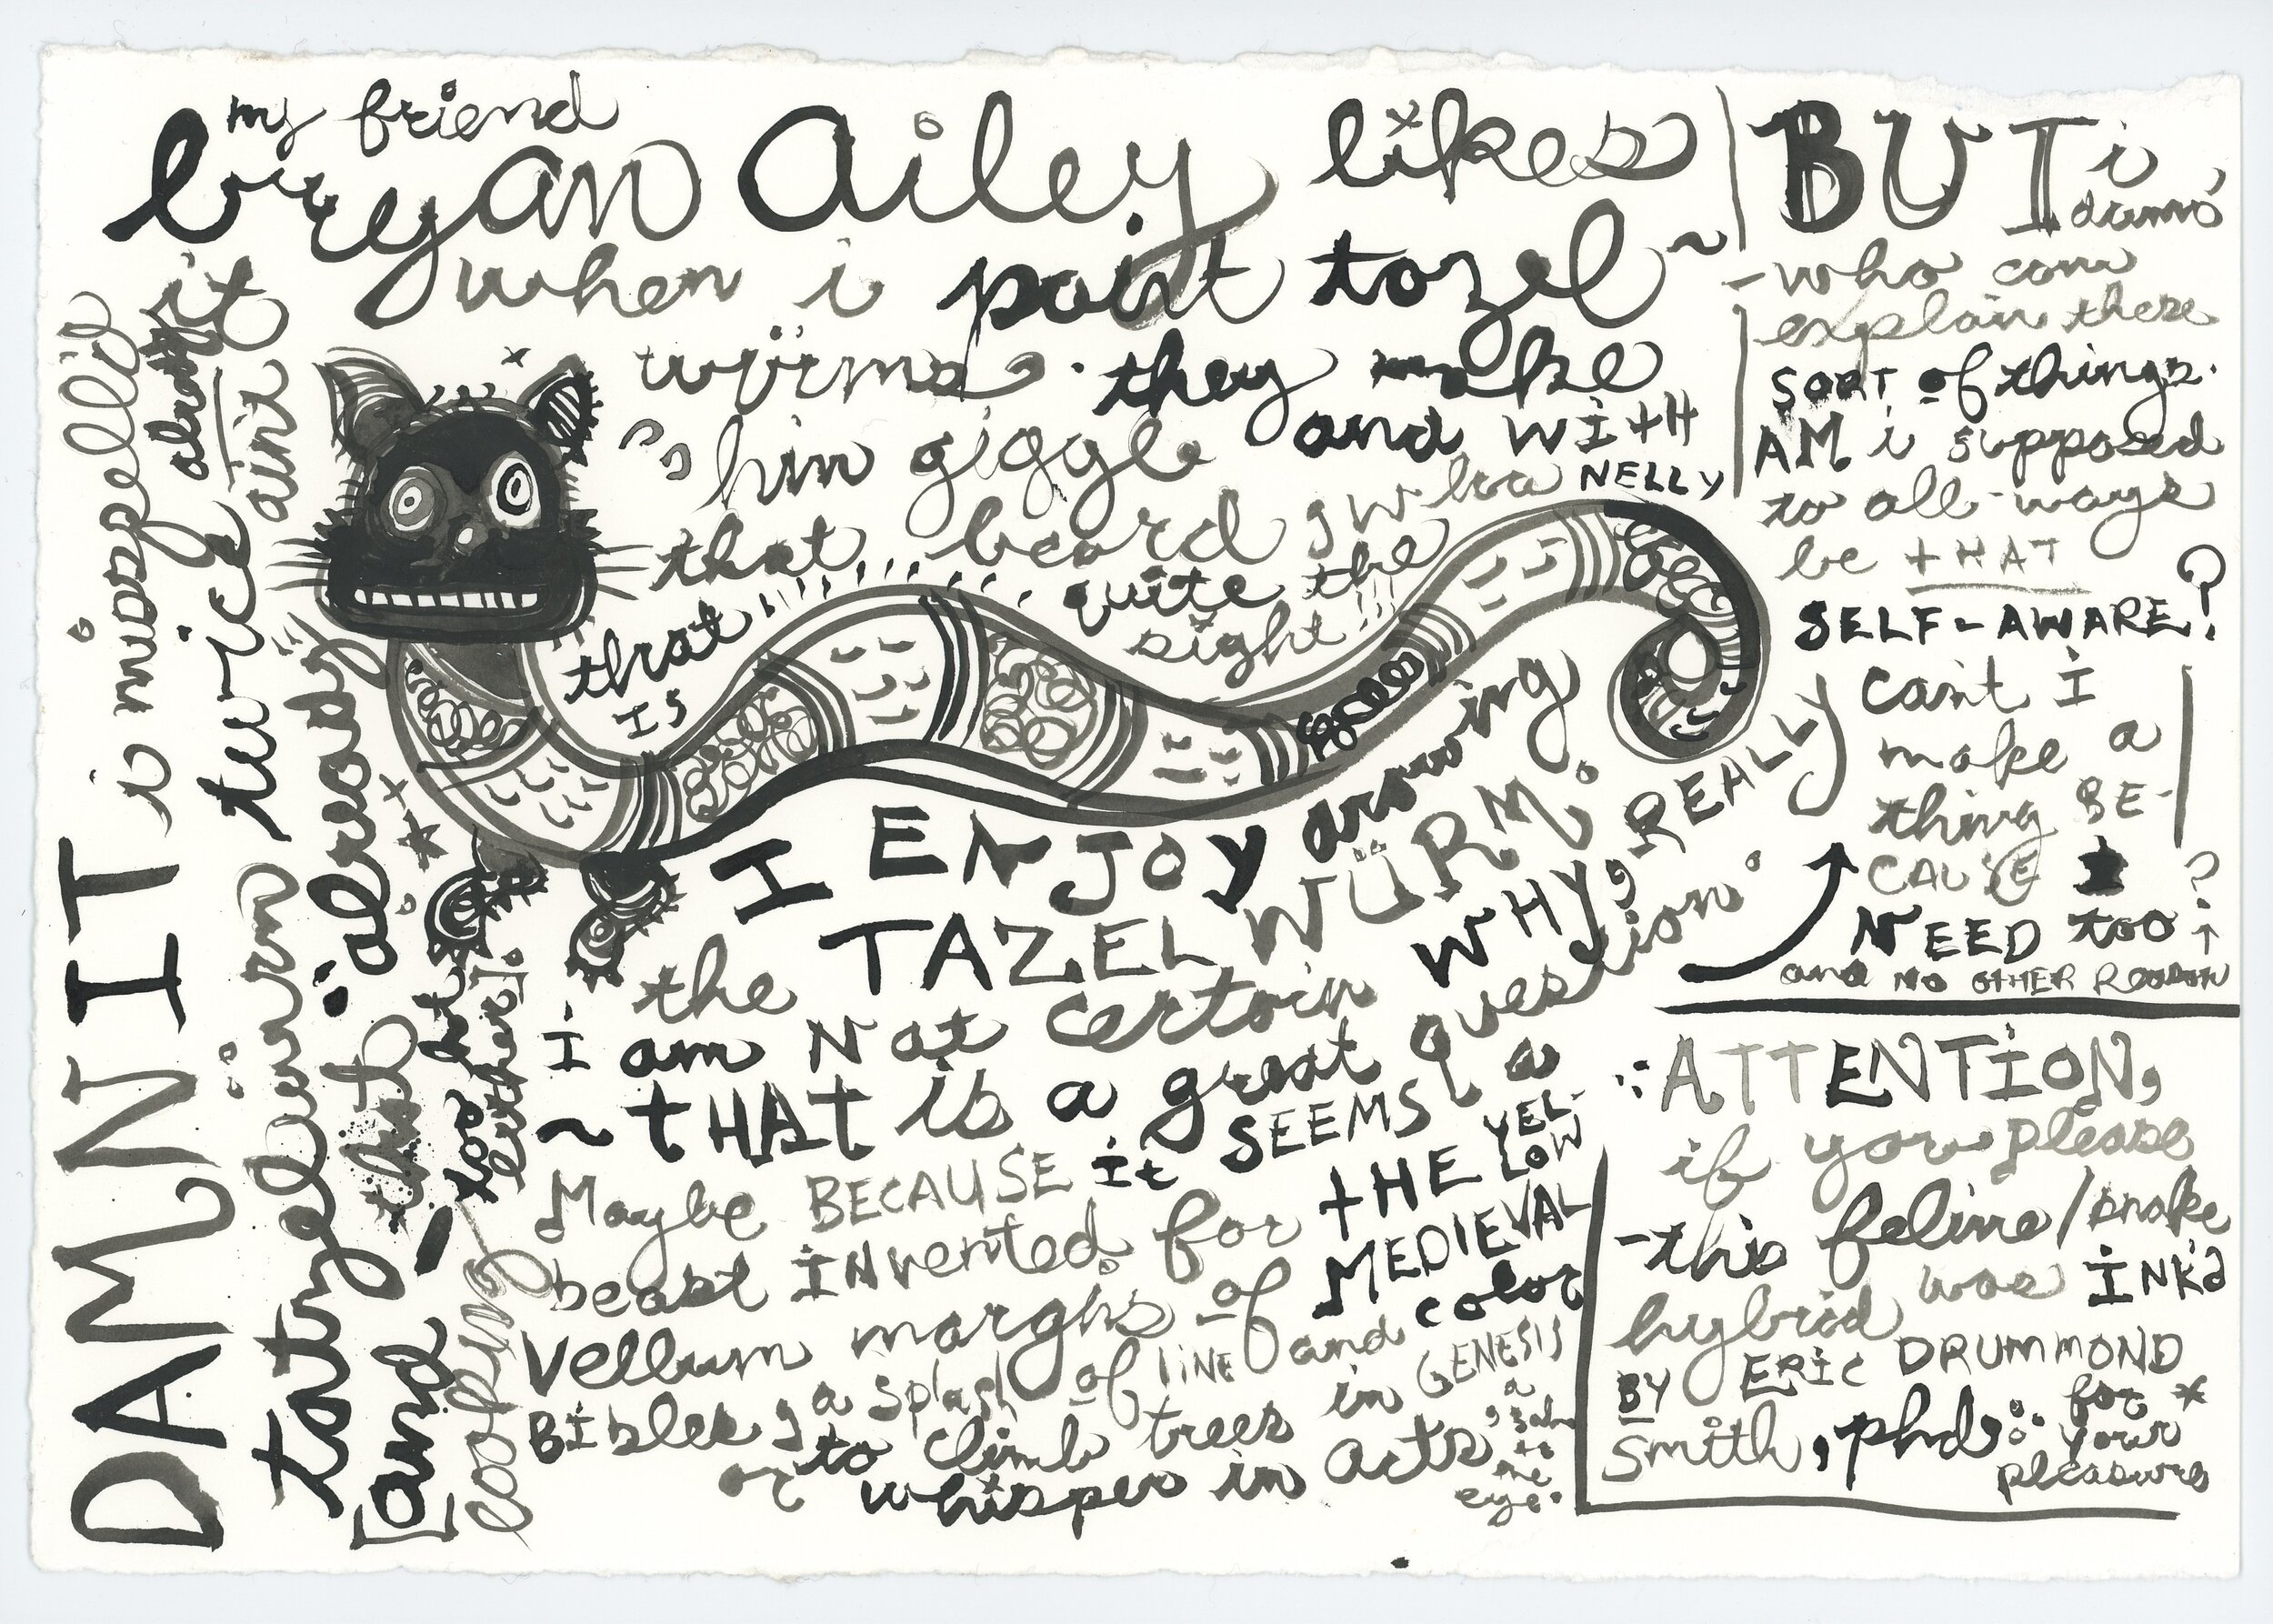 my friend
bryan Ailey likes
when i paint tozel~
würms. they make
him giggle and WITH
that beard, whoa NELLY
that IS quite the
sight!!!
I ENJOY drawing
the TAZEL WÜRM.
I am Not certain WHY, REALLY
~THAT is a great question.
Maybe BECAUSE it SEEMS a
beast INvented for THE YEL-
LOW
Vellum margins of MEDIEVAL
BIbles, a splash of LINE and color
or to climb trees in GENESIS
whisper in Acts,
a balm
to
me
eye.
BUT i dunno,
-who can
explain these
SORT of things.
AM i supposed
to all-ways
be THAT
SELF-AWARE?!
can't I
make a
thing BE-
CAUSE I
NEED too?
and NO OTHER REASON
:ATTENTION,
if you please
-this feline/snake
hybrid was INK'd
BY ERIC DRUMMOND
Smith, phd,:: for
your
pleasure
DAMNIT i misspelled
tatzelwurm twice
already
ain't it
[and that